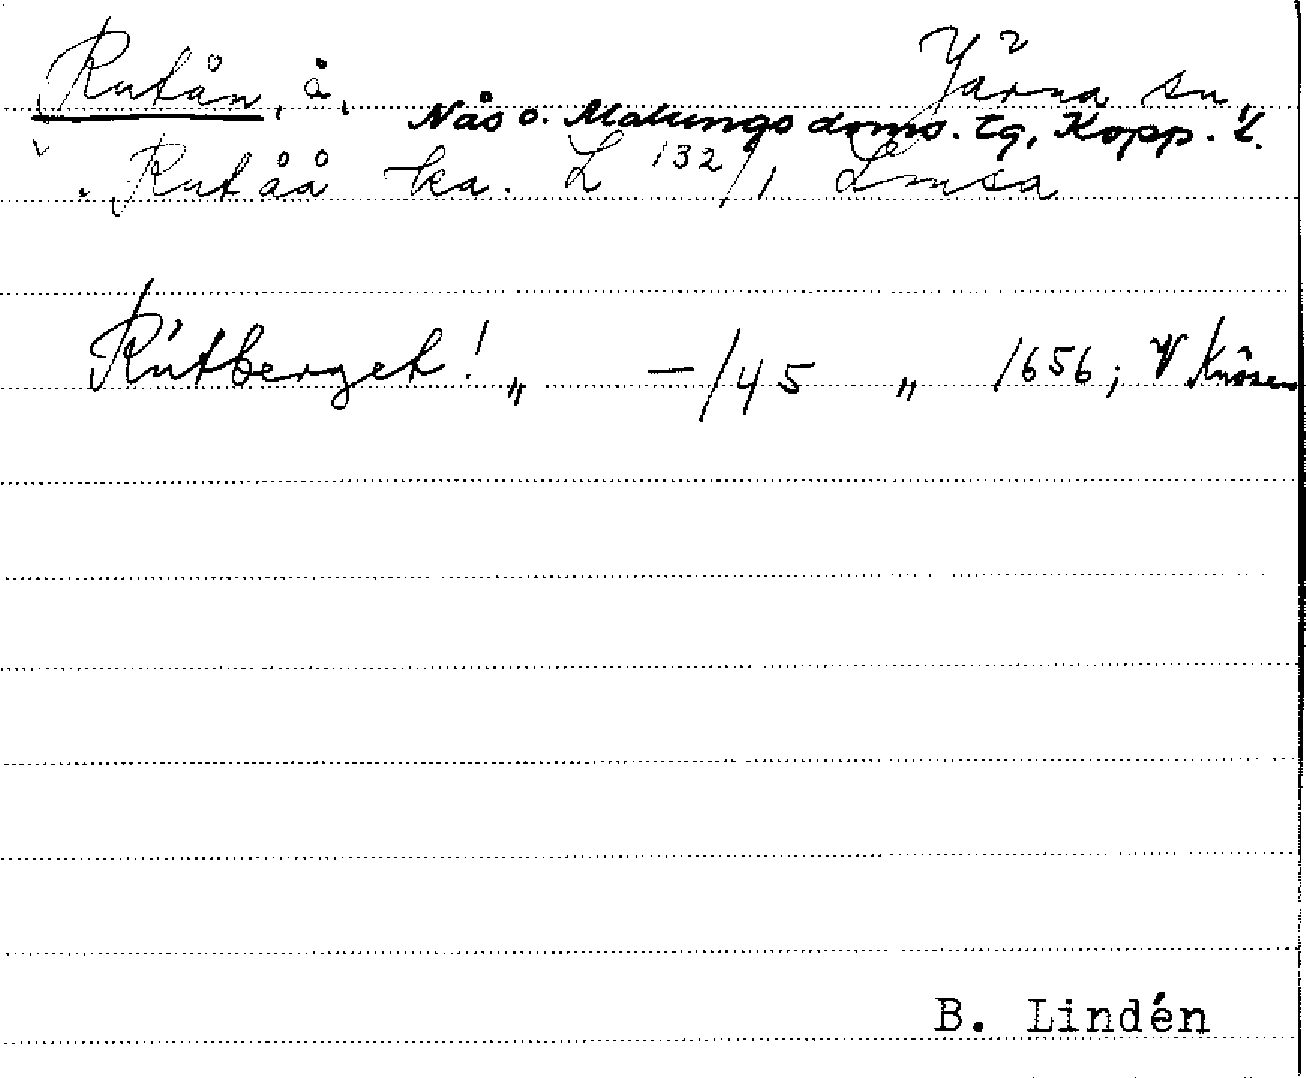 Rutån, å, Järna sn,
Nås o. Malungs doms. tg, Kopp. l.
Rutåå ka. L 132/1 Limsa
Rútberget! „ —/45 „ 1656; V Knösen
B. Lindén